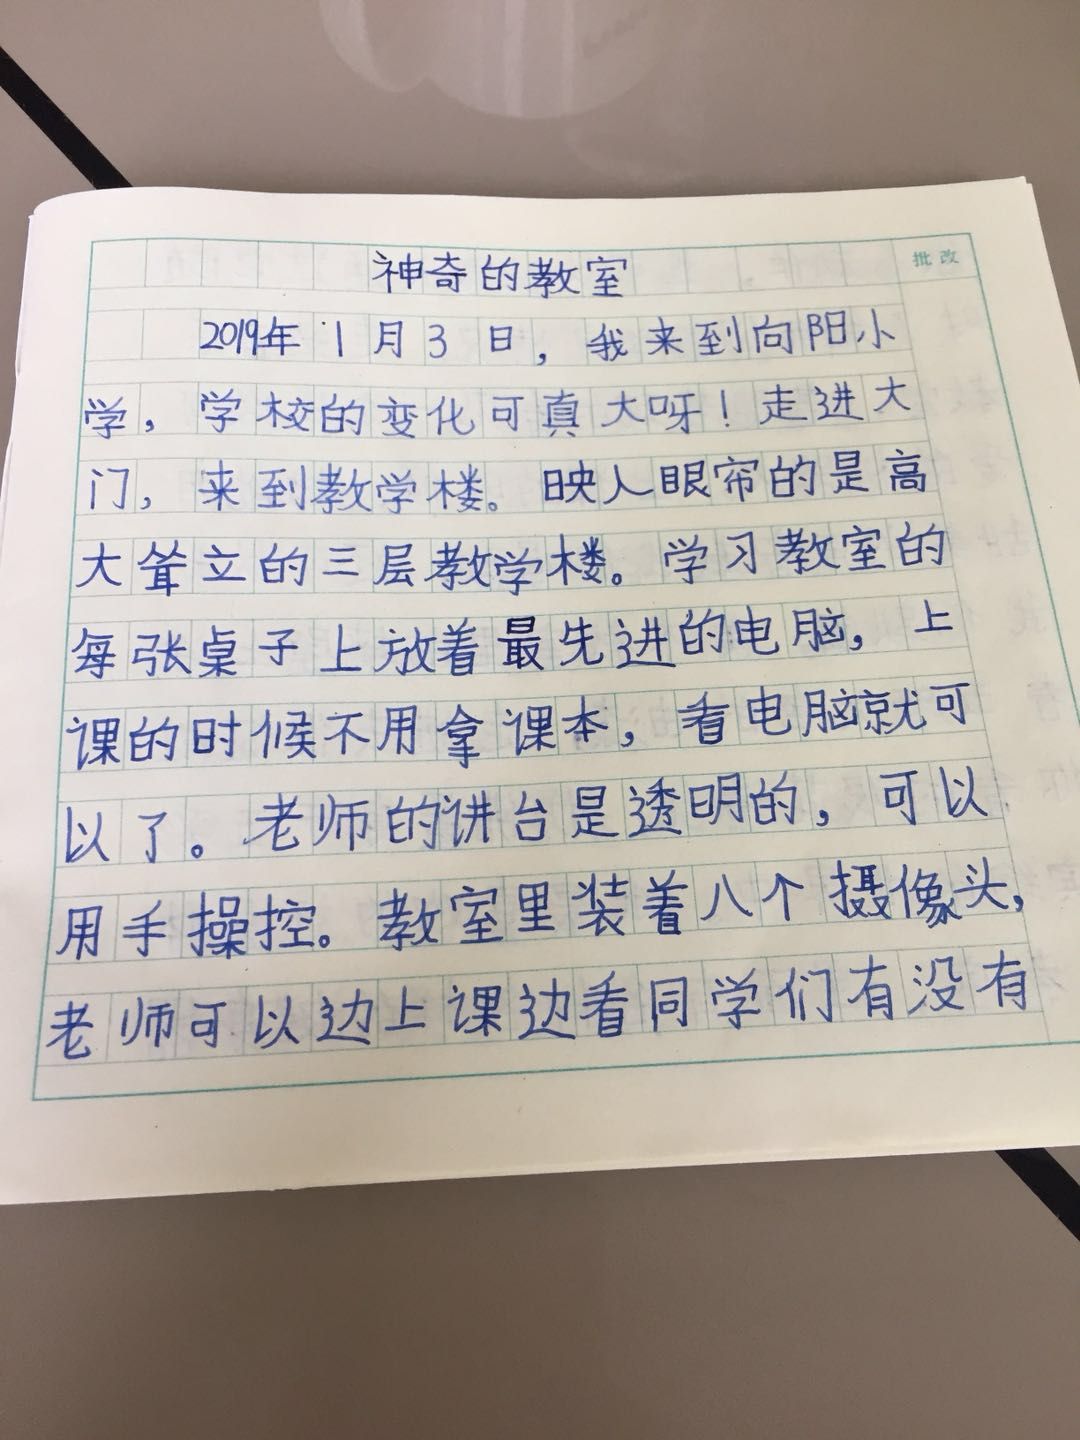 神奇的教室
批改
2019年1月3日，我来到向阳小
学，学校的变化可真大呀！走进大
门，来到教学楼。映人眼帘的是高
大耸立的三层教学楼。学习教室的
每张桌子上放着最先进的电脑，上
课的时候不用拿课本，看电脑就可
以了。老师的讲台是透明的，可以
用手操控。教室里装着八个摄像头，
老师可以边上课边看同学们有没有